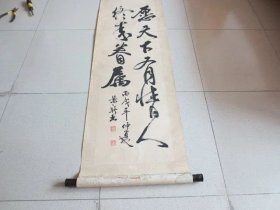 愿天下有情人
终成眷属
丙戌年仲夏